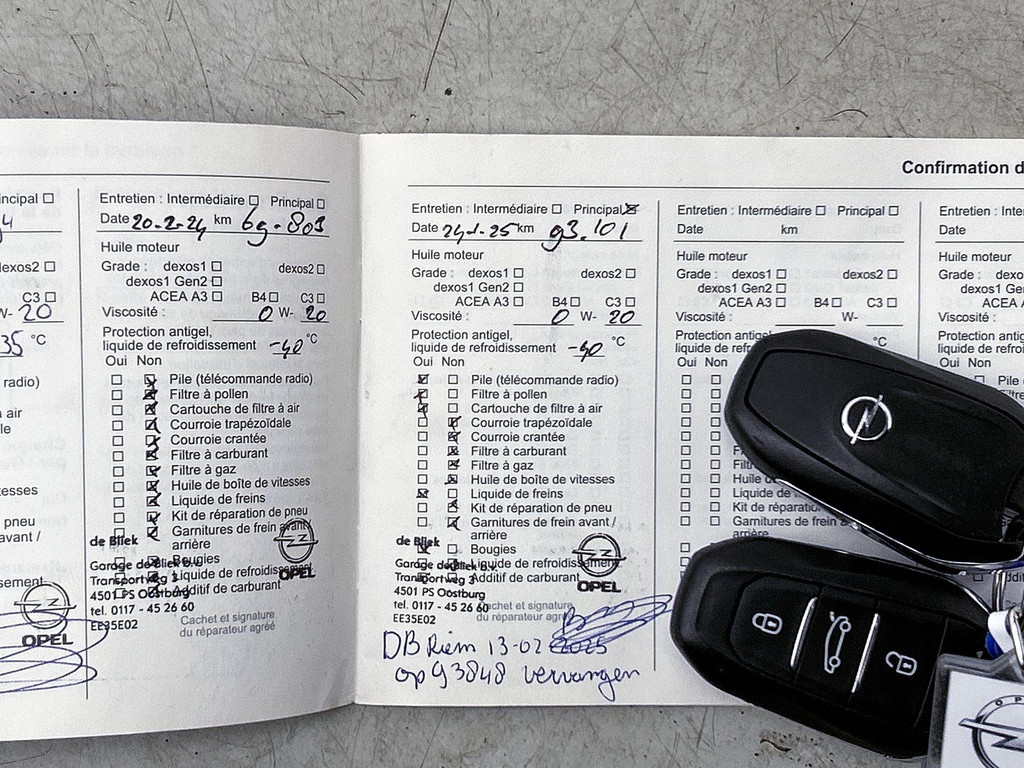 Confirmation d
ncipal ☐
94
dexos2 ☐
C3 ☐
W- 20
35 °C
radio)
à air
le
vitesses
pneu
avant /
sement
OPEL
Entretien : Intermédiaire ☐ Principal ☐
Date 20-2-24 km 69.803
Huile moteur
Grade : dexos1 ☐ dexos2 ☐
dexos1 Gen2 ☐
ACEA A3 ☐ B4 ☐ C3 ☐
Viscosité : 0 W- 20
Protection antigel,
liquide de refroidissement -40 °C
Oui Non
Pile (télécommande radio)
Filtre à pollen
Cartouche de filtre à air
Courroie trapézoïdale
Courroie crantée
Filtre à carburant
Filtre à gaz
Huile de boîte de vitesses
Liquide de freins
Kit de réparation de pneu
Garnitures de frein avant /
arrière
Bougies
Liquide de refroidissement
Additif de carburant
de Bliek
Garage de Bliek b.v.
Transportweg 3
4501 PS Oostburg
tel. 0117 - 45 26 60
EE35E02
OPEL
Cachet et signature
du réparateur agréé
Entretien : Intermédiaire ☐ Principal ☒
Date 24-1-25 km 93.101
Huile moteur
Grade : dexos1 ☐ dexos2 ☐
dexos1 Gen2 ☐
ACEA A3 ☐ B4 ☐ C3 ☐
Viscosité : 0 W- 20
Protection antigel,
liquide de refroidissement -40 °C
Oui Non
Pile (télécommande radio)
Filtre à pollen
Cartouche de filtre à air
Courroie trapézoïdale
Courroie crantée
Filtre à carburant
Filtre à gaz
Huile de boîte de vitesses
Liquide de freins
Kit de réparation de pneu
Garnitures de frein avant /
arrière
Bougies
Liquide de refroidissement
Additif de carburant
de Bliek
Garage de Bliek b.v.
Transportweg 3
4501 PS Oostburg
tel. 0117 - 45 26 60
EE35E02
OPEL
Cachet et signature
du réparateur agréé
DB Riem 13-02 2025
op 93848 vervangen
Entretien : Intermédiaire ☐ Principal ☐
Date km
Huile moteur
Grade : dexos1 ☐ dexos2 ☐
dexos1 Gen2 ☐
ACEA A3 ☐ B4 ☐ C3 ☐
Viscosité : W-
Protection antigel,
liquide de refr °C
Oui Non
Filtr
Huile
Liquide
Kit de réparation
Garnitures de frein a
arrière
Entretien
Date
Huile moteur
Grade : dexo
dexos1 G
ACEA A
Viscosité :
Protection antigel,
liquide de refroidis
Oui Non
Pile (téle
Filtre à